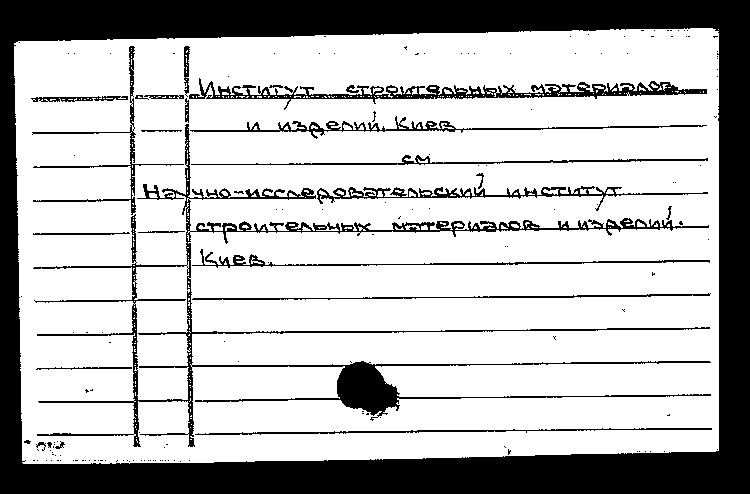 Институт строительных материалов
и изделий. Киев.
см
Научно-исследовательский институт
строительных материалов и изделий.
Киев.